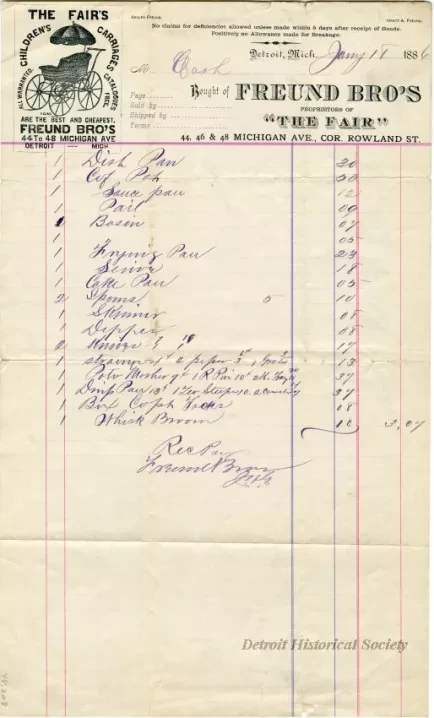 THE FAIR'S
CHILDREN'S CARRIAGES
ALL WARRANTED.
CATALOGUES FREE.
ARE THE BEST AND CHEAPEST,
FREUND BRO'S
44 To 48 MICHIGAN AVE
DETROIT — MICH
No claims for deficiencies allowed unless made within 5 days after receipt of Goods.
Positively no Allowance made for Breakage.
Detroit, Mich. Jany 18 1886
No. Cash
Page
Sold by
Shipped by
Terms
Bought of FREUND BRO'S
PROPRIETORS OF
"THE FAIR"
44, 46 & 48 MICHIGAN AVE., COR. ROWLAND ST.
1 Dish Pan 20
1 Cof Pot
1 Sauce pan 12
1 Pail 09
1 Basin 07
1 05
1 Frying Pan 23
1 Sieve 18
1 Cake Pan 05
2 Spoons 5 10
1 Skimer 08
1 Dipper 08
2 Knives 17
1 13
1 37
1 37
1 08
1 Whisk Broom 10 3,07
Rec Pay
Freund Bros
Detroit Historical Society